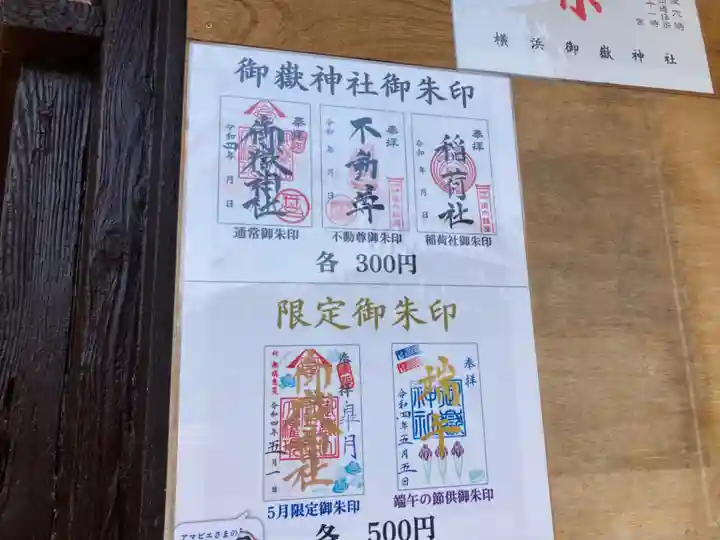 横浜御嶽神社
御嶽神社御朱印
奉拝
御嶽神社
令和四年 月 日
通常御朱印
奉拝
不動尊
令和 年 月 日
不動尊御朱印
奉拝
稲荷社
令和 年 月 日
稲荷社御朱印
各 300円
限定御朱印
奉拝
皐月
御嶽神社
令和四年五月一日
5月限定御朱印
奉拝
端午
令和四年五月五日
端午の節供御朱印
各 500円
アマビエさまの